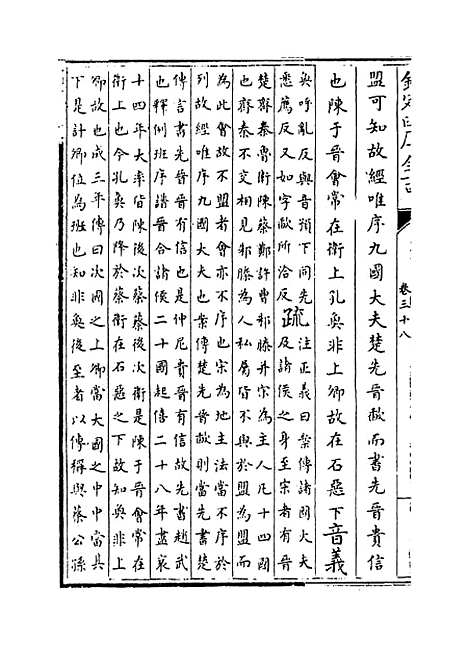 欽定四庫全書 卷三十八
盟可知故經唯序九國大夫楚先晉歃而書先晉貴信
也陳于晉會常在衛上孔奐非上卿故在石惡下音義
奐呼亂反與音預下同先
悉薦反又如字歃所洽反
疏
注正義曰案傳諸國大夫
及諸侯之身至宋者有晉
楚齊秦魯衛陳蔡鄭許曹邾滕并宋為主人凡十四國
也齊秦不交相見邾滕為人私屬皆不與於盟為盟而
為此會故不盟者會亦不序也宋為地主法當不序於
列故經唯序九國大夫也案傳楚先晉歃則當先書楚
傳言書先晉晉有信也是仲尼貴晉有信故先書趙武
也釋例班序譜晉合諸侯二十國起僖二十八年盡哀
十四年大率皆陳後次蔡蔡後次衛是陳于晉會常在
衛上也今孔奐乃降於蔡衛在石惡之下故知奐非上
卿故也成三年傳曰次國之上卿當大國之中中當其
下是計卿位為班也知非奐後至者以傳稱與蔡公孫